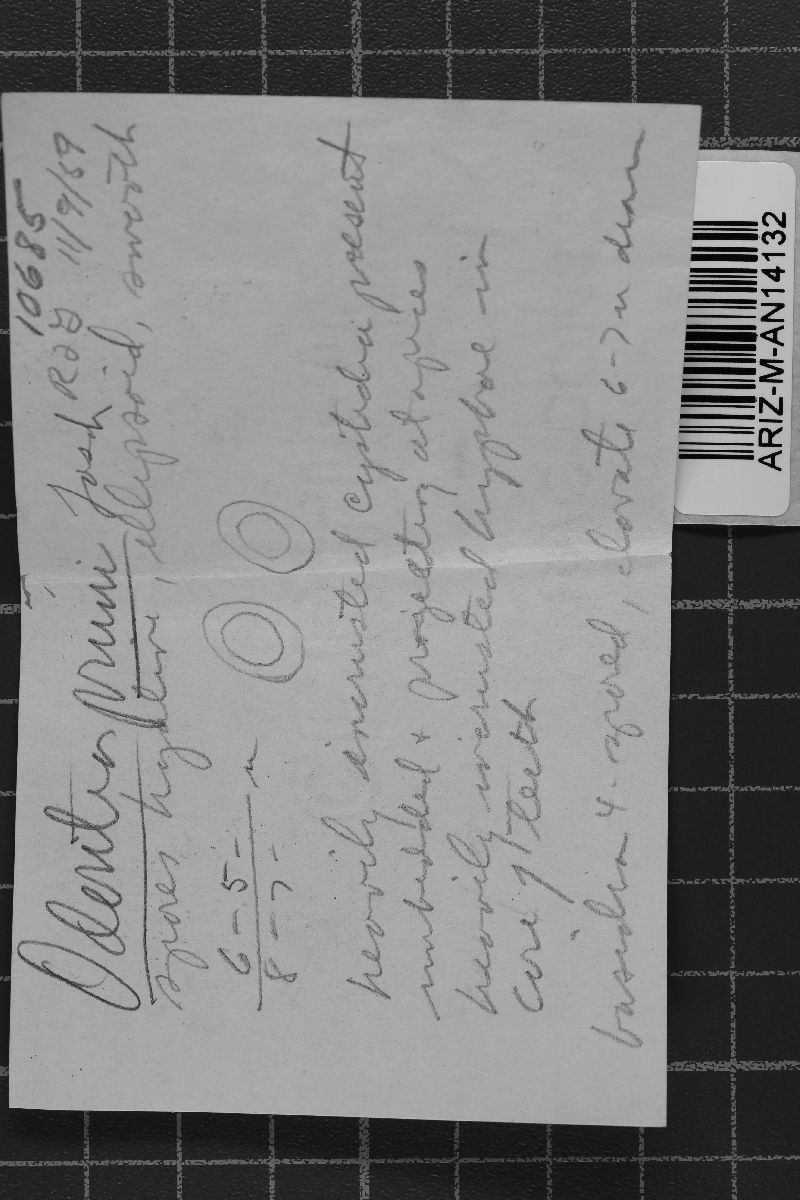 10685
Odontia pruni Lasch RLG 11/9/59
spores hyaline, ellipsoid, smooth
6-5-
8-7- u
heavily incrusted cystidia present
imbedded + projecting at apices
heavily incrusted hyphae in
core of teeth
basidia 4-spored, clavate 6-7 u diam
ARIZ-M-AN14132